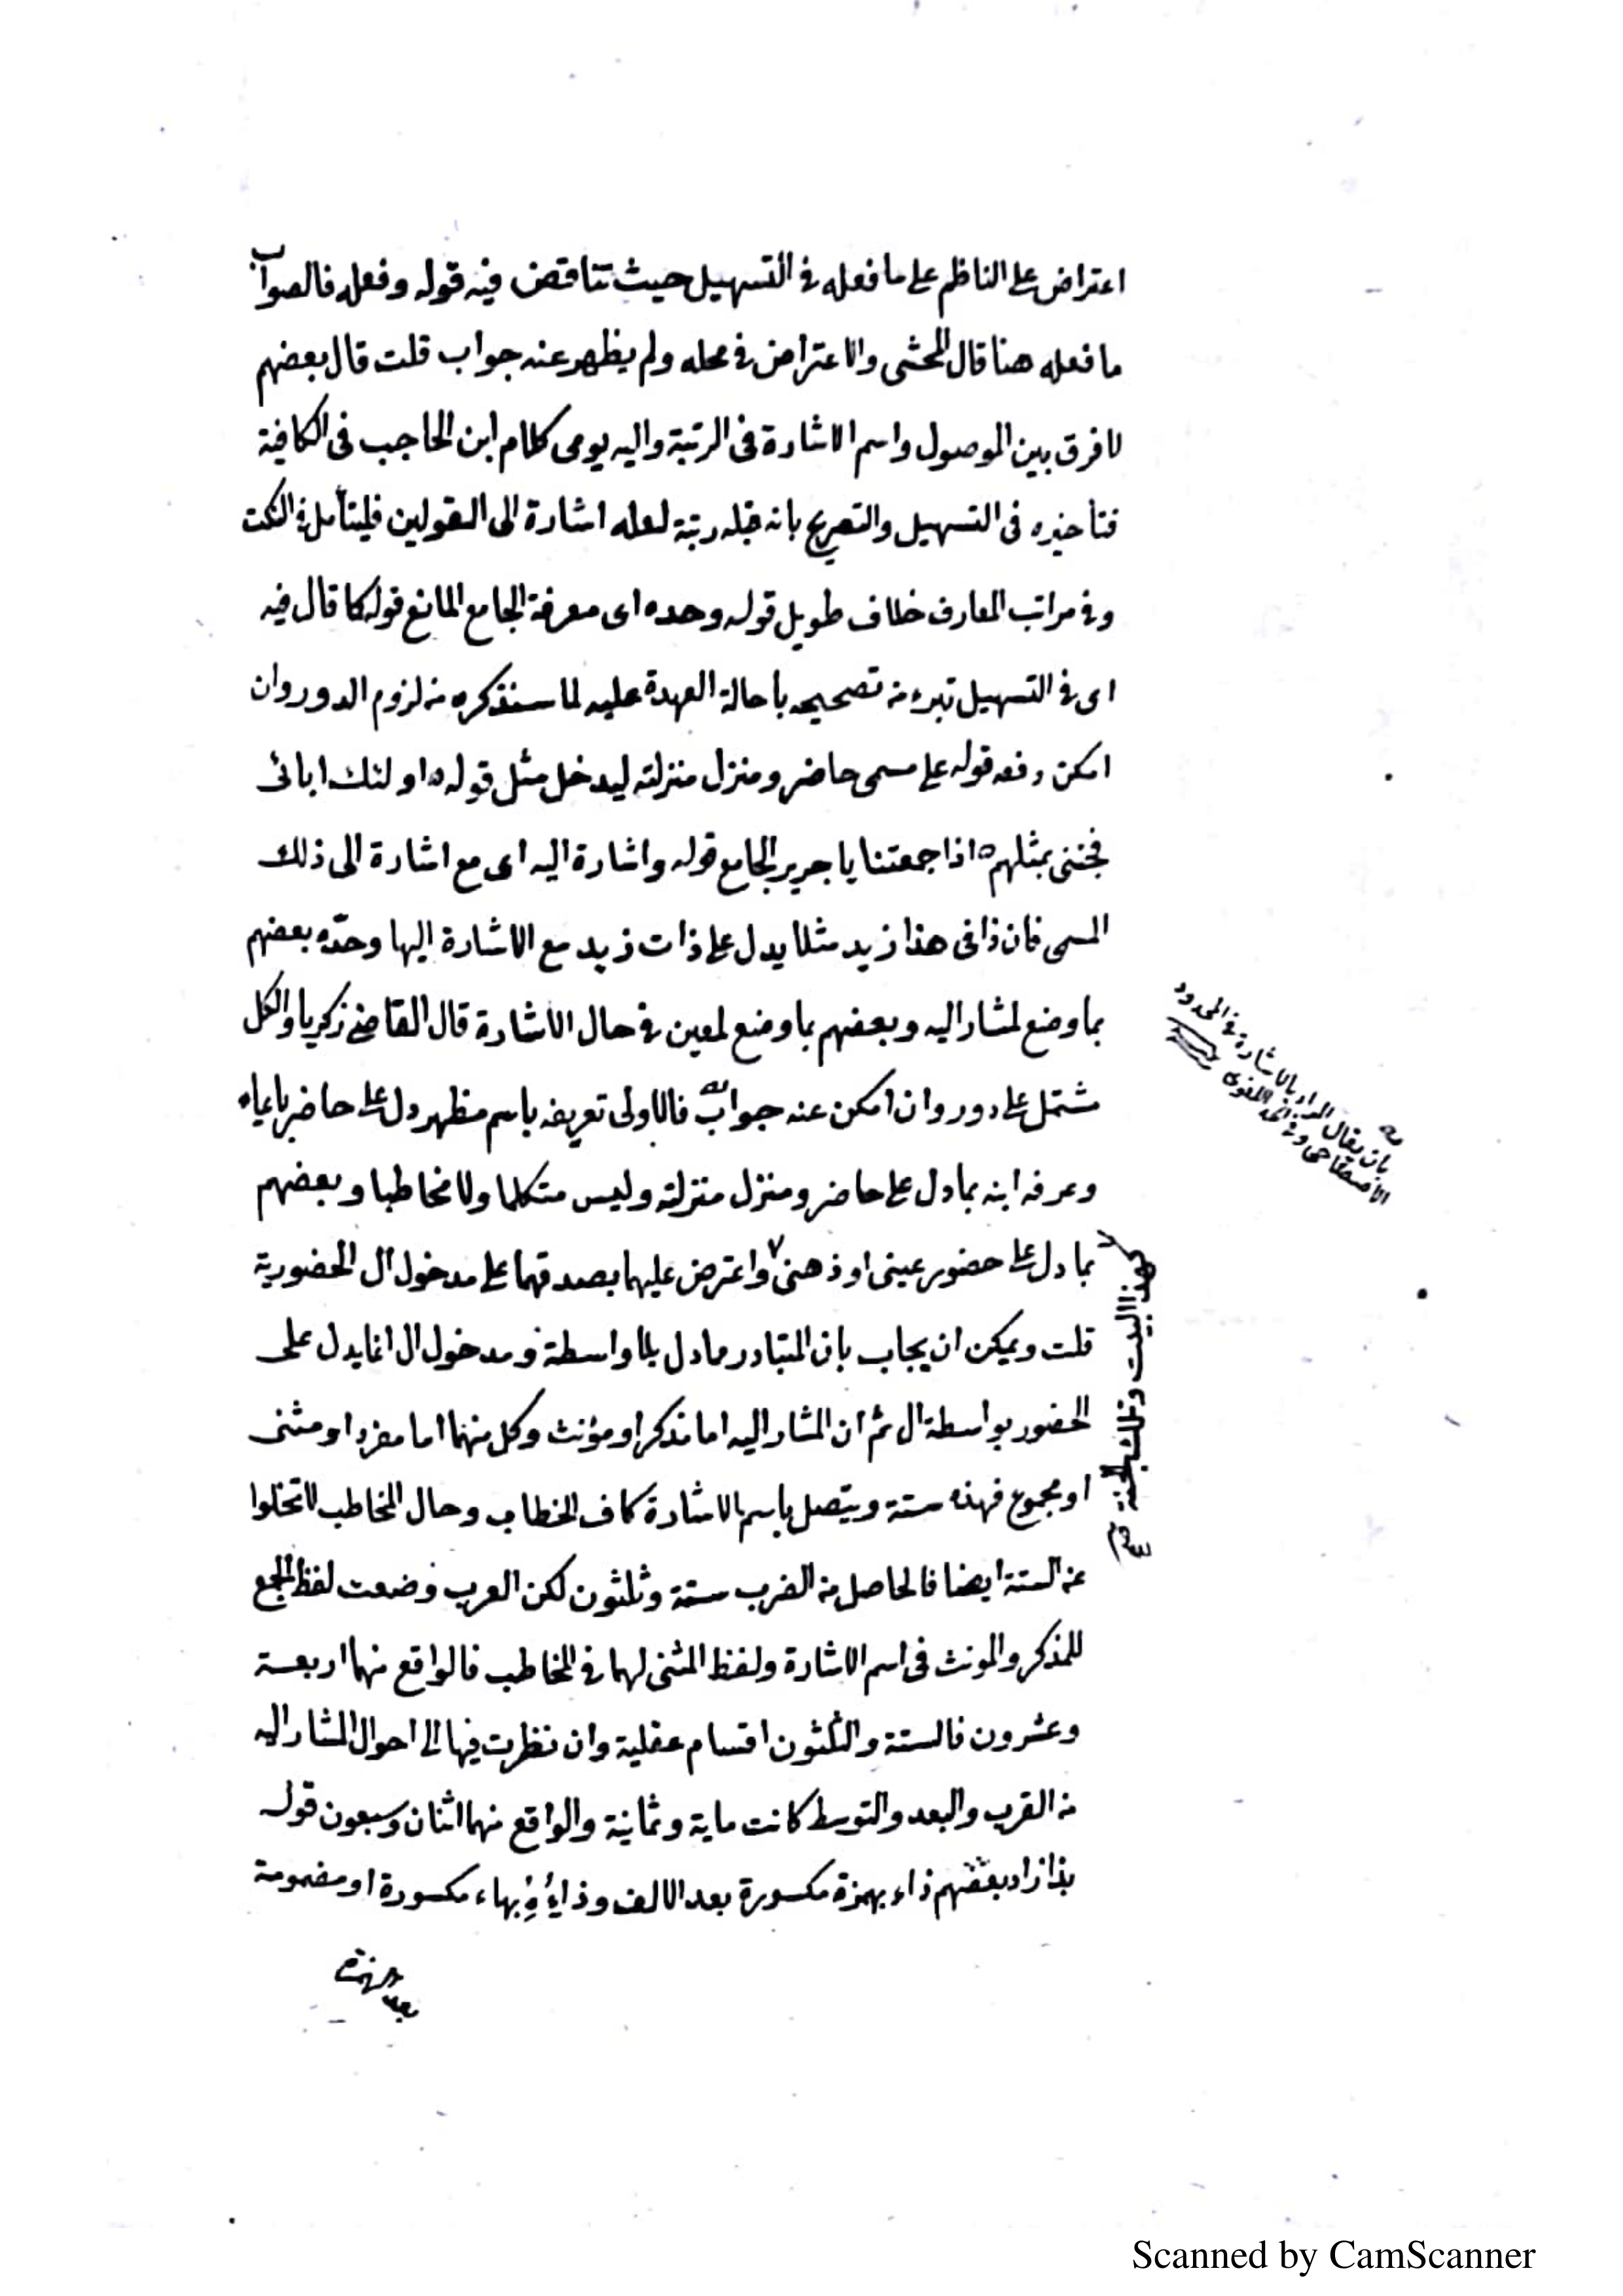 اعتراض على الناظم على ما فعله في التسهيل حيث تناقض فيه قوله وفعله فالصواب
ما فعله هنا قال المحشى والاعتراض في محله ولم يظهر عنه جواب قلت قال بعضهم
لا فرق بين الموصول واسم الاشارة في الرتبة واليه يومى كلام ابن الحاجب في الكافية
فتأخيره في التسهيل والتصريح بانه قبله رتبة لعله اشارة الى القولين فليتأمل في النكت
وفي مراتب المعارف خلاف طويل قوله وحده اى معرفة الجامع المانع قوله كما قال فيه
اى في التسهيل تبرء من تصحيحه باحالة العهدة عليه لما سنذكره من لزوم الدور وان
امكن دفعه قوله على مسمى حاضر ومنزل منزلته ليدخل مثل قوله ه اولئك ابائى
فجئنى بمثلهم ه اذا جمعتنا يا جرير الجامع قوله واشارة اليه اى مع اشارة الى ذلك
المسمى فان ذا في هذا زيد مثلا يدل على ذات زيد مع الاشارة اليها وحدّه بعضهم
بما وضع لمشار اليه وبعضهم بما وضع لمعين في حال الاشارة قال القاضي زكريا والكل
مشتمل على دور وان امكن عنه جواب فالاولى تعريفه باسم مظهر دل على حاضر بايماء
وعرفه ابنه بما دل على حاضر ومنزل منزلته وليس متكلما ولا مخاطبا وبعضهم
بما دل على حضور عينى او ذهنى واعترض عليهما بصدقهما على مدخول ال الحضورية
قلت ويمكن ان يجاب بان المتبادر ما دل بلا واسطة ومدخول ال انما يدل على
الحضور بواسطة ال ثم ان المشار اليه اما مذكر او مؤنث وكل منهما اما مفرد او مثنى
او مجموع فهذه ستة ويتصل باسم الاشارة كاف الخطاب وحال المخاطب لا تخلوا
عن الستة ايضا فالحاصل من الضرب ستة وثلثون لكن العرب وضعت لفظ الجمع
للمذكر والمونث في اسم الاشارة ولفظ المثنى لهما في المخاطب فالواقع منهما اربعة
وعشرون فالستة والثلثون اقسام عقلية وان نظرت فيها الى احوال المشار اليه
من القرب والبعد والتوسط كانت ماية وثمانية والواقع منهما اثنان وسبعون قوله
بذا زاد بعضهم ذاء بهمزة مكسورة بعد الالف وذائه بهاء مكسورة او مضمومة
بعد الهمزة
بان يقال المراد بالاشارة في المحدود
الاصطلاحي وفي الحد اللغوي
كهذا البيت وتلك الجنة
Scanned by CamScanner